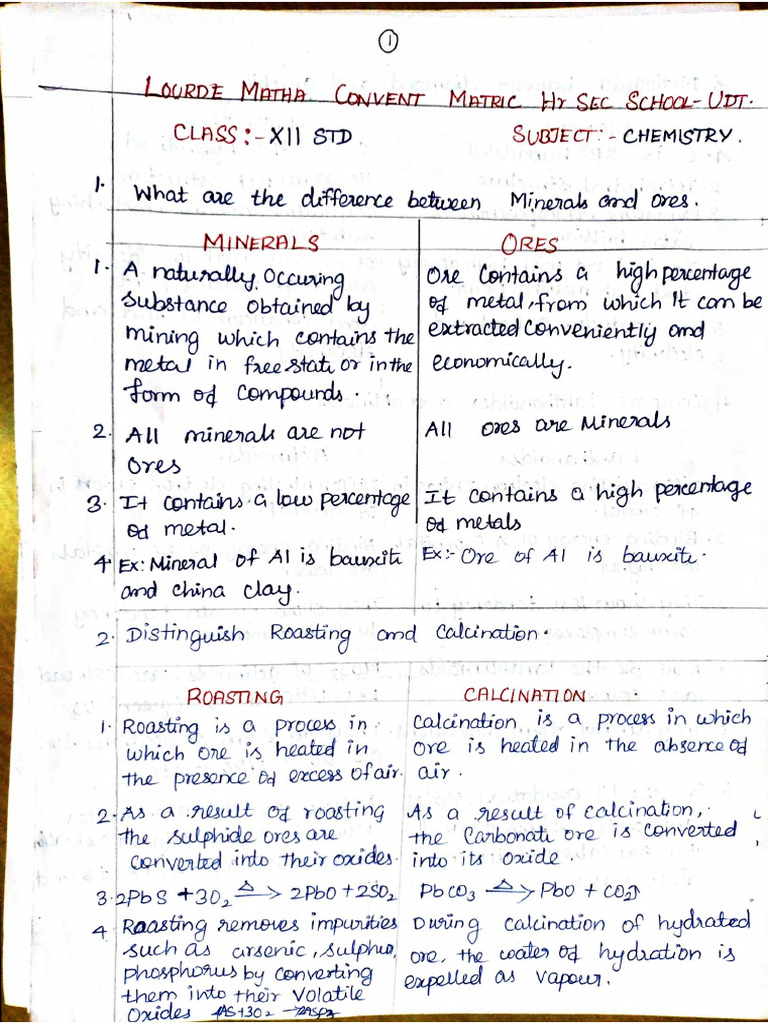 1
LOURDE MATHA CONVENT MATRIC Hr SEC SCHOOL-UDT.
CLASS:- XII STD SUBJECT:- CHEMISTRY.
1. What are the difference between Minerals and Ores.
MINERALS
1. A naturally occuring
substance obtained by
mining which contains the
metal in free state or in the
form of compounds.
ORES
Ore contains a high percentage
of metal, from which It can be
extracted conveniently and
economically.
2. All minerals are not
Ores
All ores are Minerals
3. It contains a low percentage
of metal.
It contains a high percentage
of metals
4. Ex: Mineral of Al is bauxite
and china clay.
Ex:- Ore of Al is bauxite.
2. Distinguish Roasting and Calcination.
ROASTING
1. Roasting is a process in
which ore is heated in
the presence of excess of air.
CALCINATION
Calcination is a process in which
ore is heated in the absence of
air.
2. As a result of roasting
the sulphide ores are
converted into their oxides.
As a result of calcination,
the Carbonate ore is converted
into its oxide.
3. 2PbS + 3O₂ △→ 2PbO + 2SO₂
PbCO₃ △→ PbO + CO₂↑
4. Roasting removes impurities
such as arsenic, sulphur,
phosphorus by converting
them into their volatile
Oxides
During calcination of hydrated
ore, the water of hydration is
expelled as vapour.